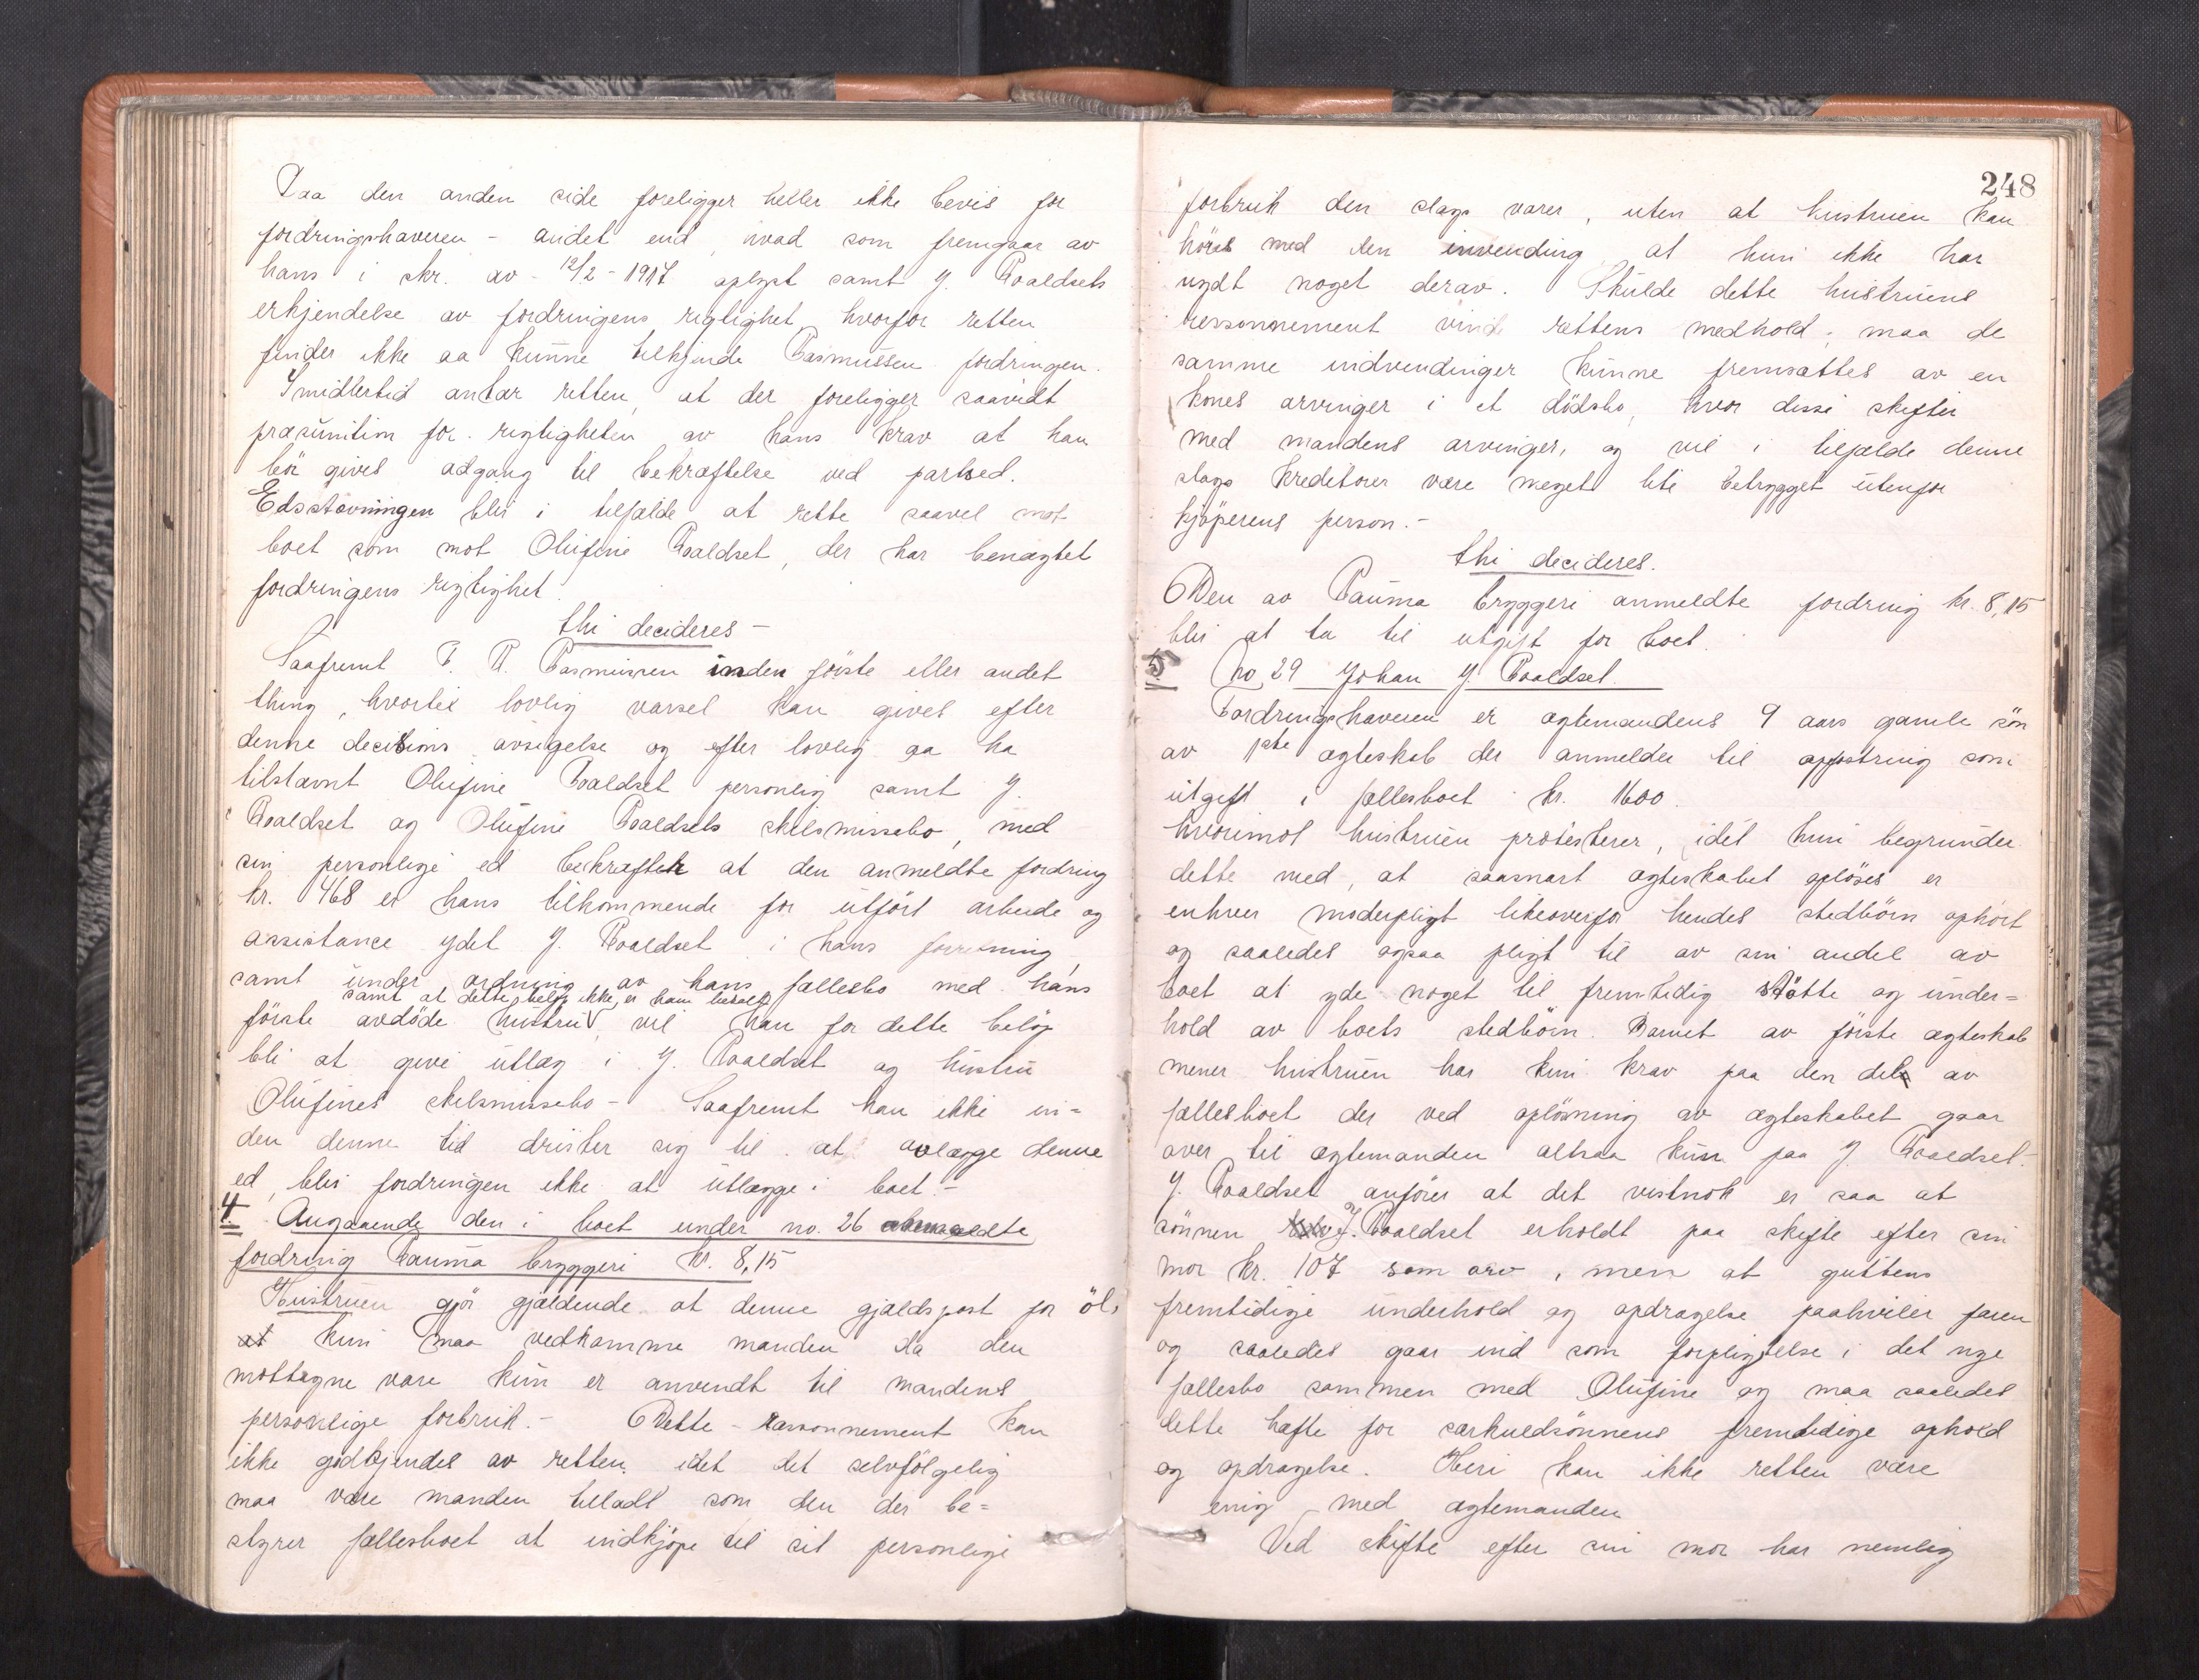 Paa den anden side foreligger heller ikke bevis for
fordringshaveren - andet end, hvad som fremgaar av
hans i skr. av 12/2 - 1917 oplyst samt J. Roaldsets
erkjendelse av fordringens rigtighet, hvorfor retten
finder ikke aa kunne tilkjende Rasmussen fordringen.
Imidlertid antar retten, at der foreligger saavidt
præsumtion for rigtigheten av hans krav at han
bör gives adgang til bekræftelse ved partsed.
Edsstævningen blir i tilfælde at rette saavel mot
boet som mot Olufine Roaldset, der har benægtet
fordringens rigtighet.
thi decideres -
Saafremt P. R. Rasmussen inden förste eller andet
thing, hvortil lovlig varsel kan gives efter
denne decisions avsigelse og efter lovlig aa ha
tilstævnt Olufine Roaldset personlig samt J.
Roaldset og Olufine Roaldsets skilsmissebo, med
sin personlige ed bekræfter at den anmeldte fordring
kr. 468 er hans tilkommende for utfört arbeide og
assistance ydet J. Roaldset i hans forretning,
samt under ordning av hans fællesbo med hans
samt at dette belöp ikke er ham betalt
förste avdöde hustru, vil han for dette belöp
bli at give utlæg i J. Roaldset og hustru
Olufines skilsmissebo - Saafremt han ikke in=
den denne tid drister sig til at avlægge denne
ed, blir fordringen ikke at utlægge i boet. -
4. Angaaende den i boet under no. 26 anmeldte
fordring Rauma bryggeri kr. 8,15
Hustruen gjör gjældende at denne gjældspost for öl,
at kun maa vedkomme manden da den
mottagne vare kun er anvendt til mandens
personlige forbruk. - Dette ræsonnement kan
ikke godkjendes av retten, idet det selvfölgelig
maa være manden tilladt som den der be=
styrer fællesboet at indkjöpe til sit personlige
248
forbruk den slags varer, uten at hustruen kan
höres med den invending at hun ikke har
nydt noget derav. Skulde dette hustruens
ressonnement vinde rettens medhold, maa de
samme indvendinger kunne fremsættes av en
kones arvinger i et dödsbo, hvor disse skifter
med mandens arvinger, og vil i tilfælde denne
slags kreditorer være meget lite betrygget utenfor
kjöperens person. -
thi decideres.
Den av Rauma bryggeri anmeldte fordring kr. 8,15
blir at ta til utgift for boet.
5. No 29 Johan J. Roaldset.
Fordringshaveren er ægtemandens 9 aars gamle sön
av 1ste ægteskab der anmelder til opfostring som
utgift i fællesboet kr. 1600.
hvorimot hustruen protesterer, idet hun begrunder
dette med, at saasnart ægteskabet oplöses er
enhver moderpligt likeoverfor hendes stedbörn ophört
og saaledes ogsaa pligt til av sin andel av
boet at yde noget til fremtidig stötte og under=
hold av boets stedbörn. Barnet av förste ægteskab
mener hustruen har kun krav paa den del av
fællesboet der ved oplösning av ægteskabet gaar
over til ægtemanden altsaa kun paa J. Roaldset.
J. Roaldset anförer at det vistnok er saa at
sönnen J. Roaldset erholdt paa skifte efter sin
mor kr. 107 som arv, men at guttens
fremtidige underhold og opdragelse paahviler faren
og saaledes gaar ind som forpligtelse i det nye
fællesbo sammen med Olufine og maa saaledes
dette hefte for særkuldsönnens fremtidige ophold
og opdragelse. Heri kan ikke retten være
enig med ægtemanden
Ved skifte efter sin mor har nemlig